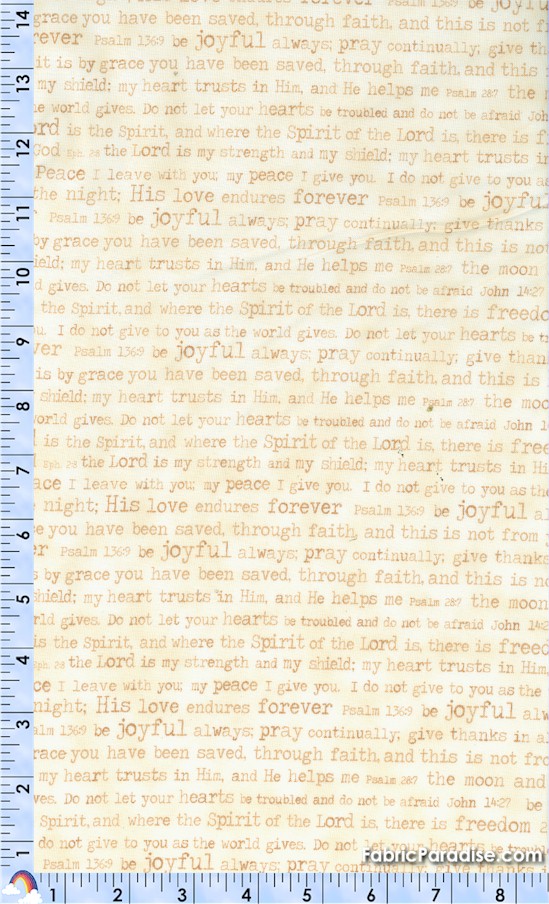 forever Psalm 136:9 be joyful
grace you have been saved, through faith, and this is not f
rever Psalm 136:9 be joyful always; pray continually; give th
it is by grace you have been saved, through faith, and this
my shield; my heart trusts in Him, and He helps me Psalm 28:7 the
e world gives. Do not let your hearts be troubled and do not be afraid Joh
ord is the Spirit, and where the Spirit of the Lord is, there is f
God Eph. 2:8 the Lord is my strength and my shield; my heart trusts i
Peace I leave with you; my peace I give you. I do not give to you a
the night; His love endures forever Psalm 136:9 be joyful
Psalm 136:9 be joyful always; pray continually; give thanks
by grace you have been saved, through faith, and this is not
ield; my heart trusts in Him, and He helps me Psalm 28:7 the moon
d gives. Do not let your hearts be troubled and do not be afraid John 14:27
the Spirit, and where the Spirit of the Lord is, there is freedo
u. I do not give to you as the world gives. Do not let your hearts be tr
ver Psalm 136:9 be joyful always; pray continually; give than
is by grace you have been saved, through faith, and this is
shield; my heart trusts in Him, and He helps me Psalm 28:7 the moo
world gives. Do not let your hearts be troubled and do not be afraid John 1
is the Spirit, and where the Spirit of the Lord is, there is free
Eph. 2:8 the Lord is my strength and my shield; my heart trusts in Hi
ace I leave with you; my peace I give you. I do not give to you as the
night; His love endures forever Psalm 136:9 be joyful al
e you have been saved, through faith, and this is not from
er Psalm 136:9 be joyful always; pray continually; give thanks
s by grace you have been saved, through faith, and this is no
hield; my heart trusts in Him, and He helps me Psalm 28:7 the moon
rld gives. Do not let your hearts be troubled and do not be afraid John 14:2
is the Spirit, and where the Spirit of the Lord is, there is freed
Eph. 2:8 the Lord is my strength and my shield; my heart trusts in Him,
ce I leave with you; my peace I give you. I do not give to you as the
night; His love endures forever Psalm 136:9 be joyful alw
alm 136:9 be joyful always; pray continually; give thanks in a
race you have been saved, through faith, and this is not fro
my heart trusts in Him, and He helps me Psalm 28:7 the moon and
ves. Do not let your hearts be troubled and do not be afraid John 14:27 be
Spirit, and where the Spirit of the Lord is, there is freedom 2
do not give to you as the world gives. Do not let your hearts be troubl
Psalm 136:9 be joyful always; pray continually; give thanks i
FabricParadise.com
14
13
12
11
10
9
8
7
6
5
4
3
2
1
1 2 3 4 5 6 7 8